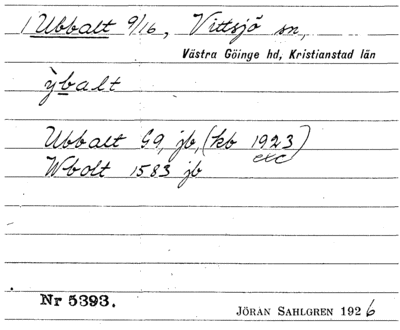 1 Ubbalt 9/16, Vittsjö sn,
Västra Göinge hd, Kristianstad län
ỳbalt
Ubbalt G9, jb, (kb 1923)
etc
Wbolt 1583 jb
Nr 5393.
JÖRAN SAHLGREN 1926